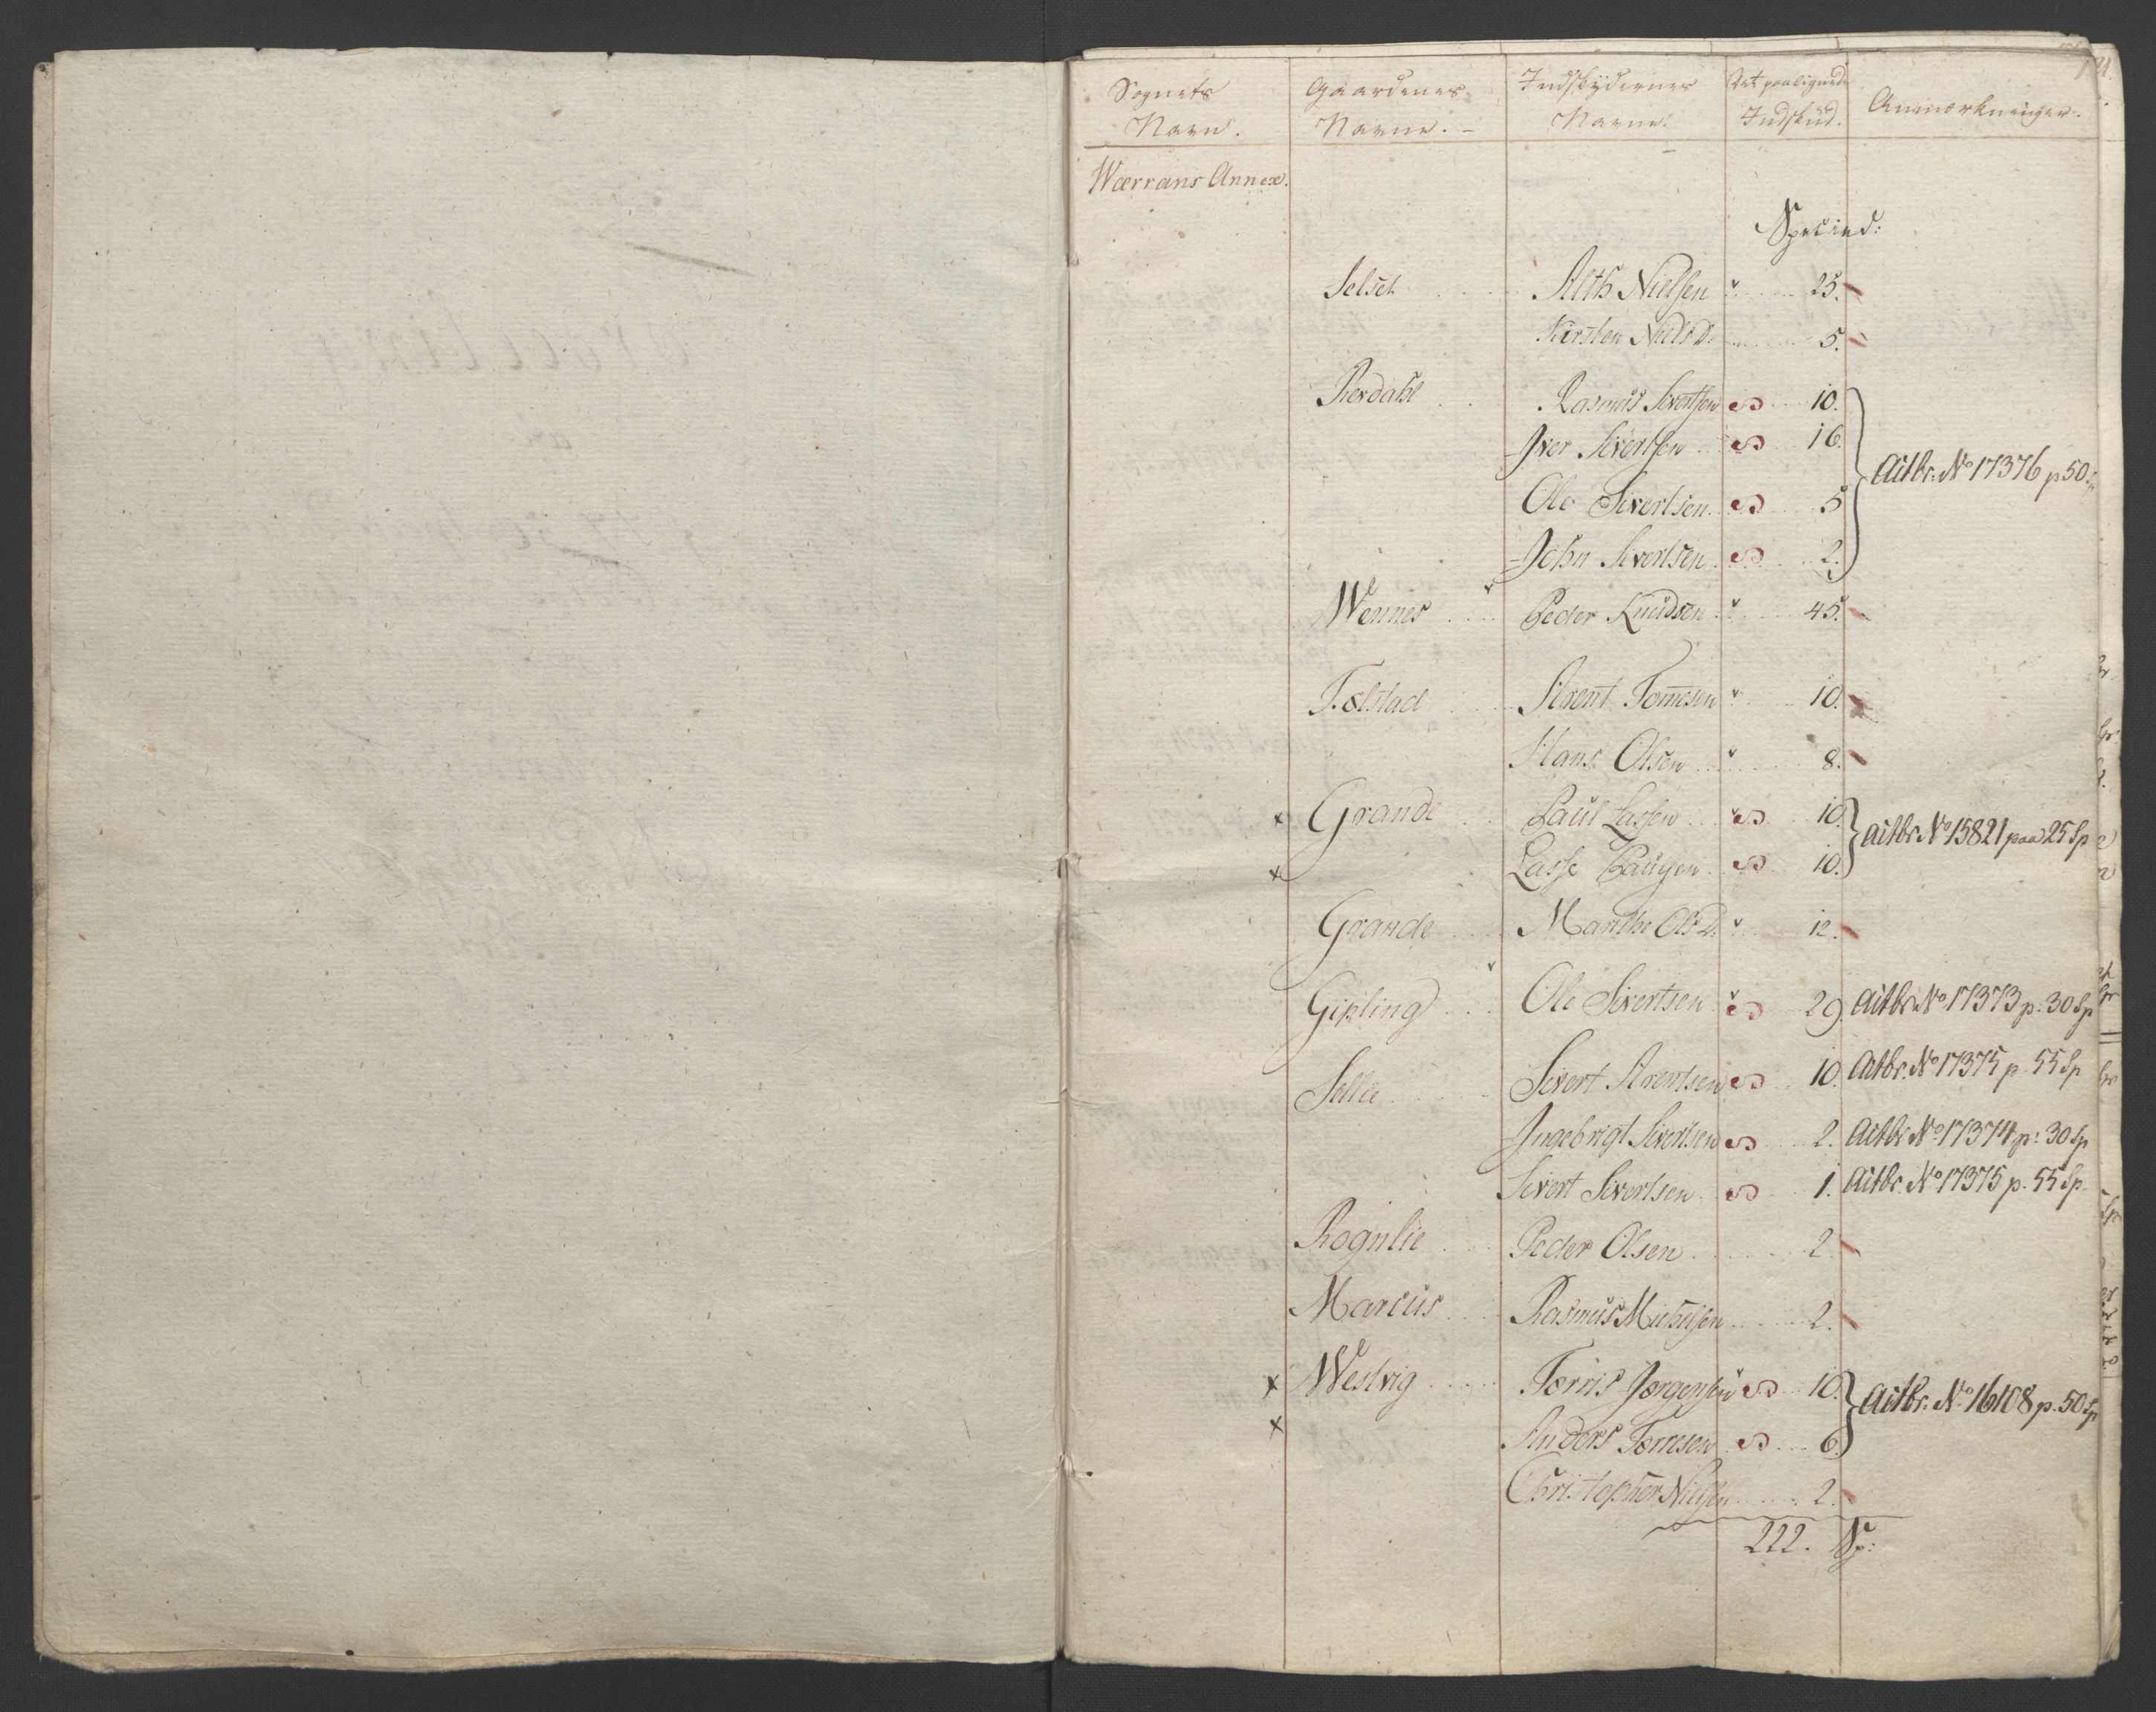 Sognets Navn. Gaardenes Navne. Indskydernes Navne. Det paalignede Indskud. Anmærkninger.
Wærrans Annex.
Specied:
Selset Alth Nielsen 25.
Kirsten Niels D. 5.
Rerdahl Rasmus Sivertsen 10.
Iver Sivertsen 16.
Actbr: No 17376 p 50
Ole Sivertsen 5
John Sivertsen 2.
Wennes Peder Knudsen 45.
Tølstad Arent Tomesen 10.
Hans Olsen 8.
x Grande Paul Lassen 10.
Actbr No 15821 paa 25 Sp
x Lasse Haugen 10.
Grande Marthe Ols D. 12.
Gipling Ole Sivertsen 29. Actbr No 17373 p. 30 Sp
Sellie Sivert Arentsen 10. Actbr. No 17375 p. 55 Sp
Ingebrigt Sivertsen 2. Actbr No 17374 p: 30 Sp
Sivert Sivertsen 1. Actbr. No 17375 p. 55 Sp
Rognlie Peder Olsen 2.
Marcus Rasmus Michelsen 2.
x Westvig Torris Jørgensen 10.
Actbr. No 16108 p. 50 Sp
x Anders Torresen 6.
Christopher Nielsen 2.
222. Sp: